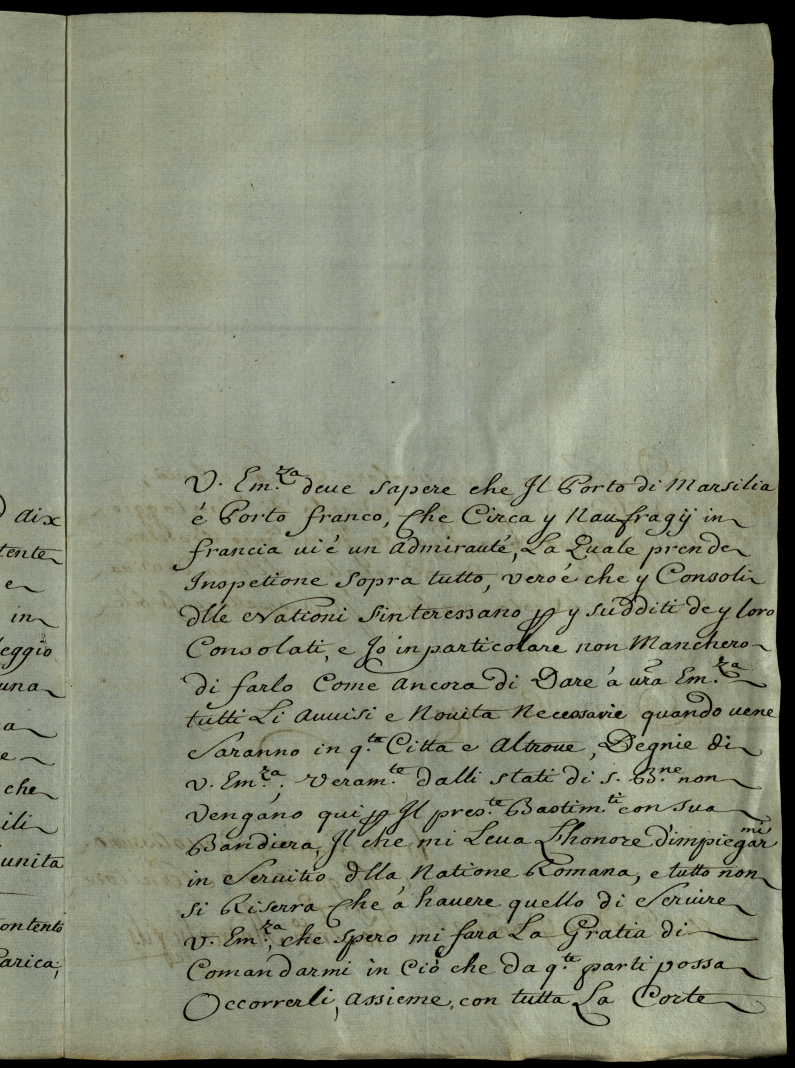 aix
tente
e
in
leggio
una
a
e
che
ili
unita
contento
Carica,
V. Em.ᶻᵃ deue sapere che Il Porto di Marsilia
é Porto franco, Che Circa y Naufragÿ in
francia ui é un admirauté, La Quale prende
Inspetione sopra tutto, vero é che y Consoli
dlle Nationi s'interessano ꝑ y sudditi de y loro
Consolati, e Jo in particolare non Manchero
di farlo Come ancora di Dare á ura Em.ᶻᵃ
tutti Li Auuisi e Nouita Necessarie quando uene
Saranno in q.ᵗᵃ Citta e Altroue, Degnie di
V. Em.ᶻᵃ; Veram.ᵗᵉ dalli stati di s. B.ⁿᵉ non
Vengano qui ꝑ Il pres.ᵗᵉ Bastim.ᵗⁱ con sua
Bandiera, Il che mi Leua L'honore d'impiegarᵐⁱ
in Seruitio dlla Natione Romana, e tutto non
si Riserra Che á hauere quello di Seruire
V. Em.ᶻᵃ, che spero mi fara La Gratia di
Comandarmi in Ciò che da q.ᵗᵉ parti possa
Occorrerli, assieme, con tutta La Corte